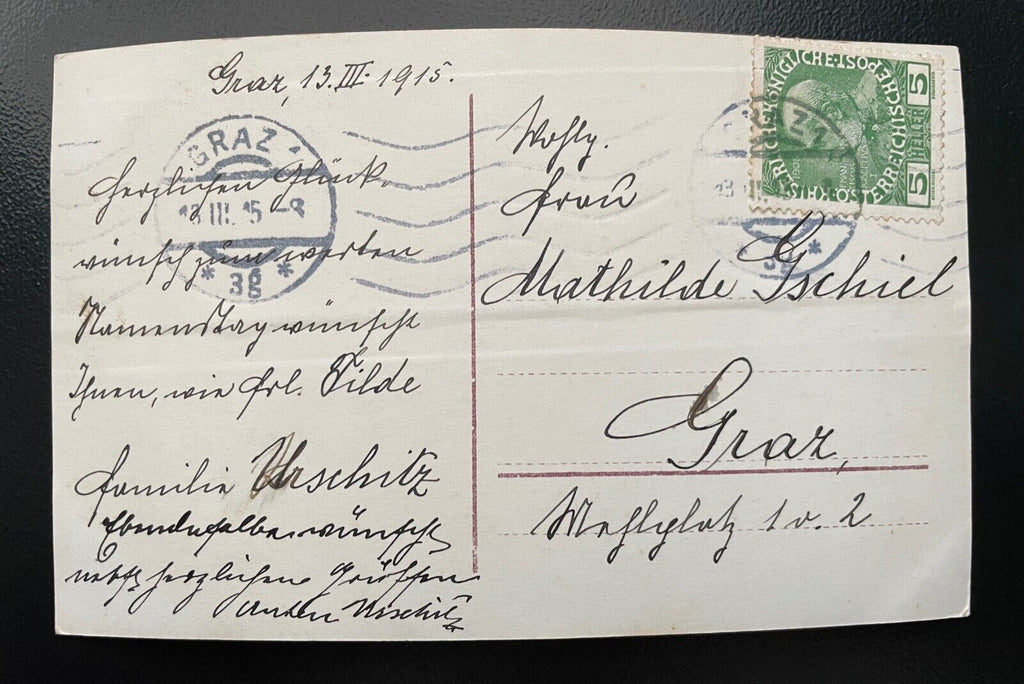 Graz, 13. III. 1915.
Herzlichen Glück-
wunsch zum werten
Namenstag wünscht
Ihnen, wie Frl. Tilde
Familie Urschitz
Ebendasselbe wünscht
nebst herzlichen Grüssen
Anton Urschitz
Wohlg.
Frau
Mathilde Gschiel
Graz,
Mehlplatz 1 o. 2
GRAZ 1
13 III. 15 -8
* 3g *
KAISERLICHE KÖNIGLICHE ÖSTERREICHISCHE POST
5 HELLER 5